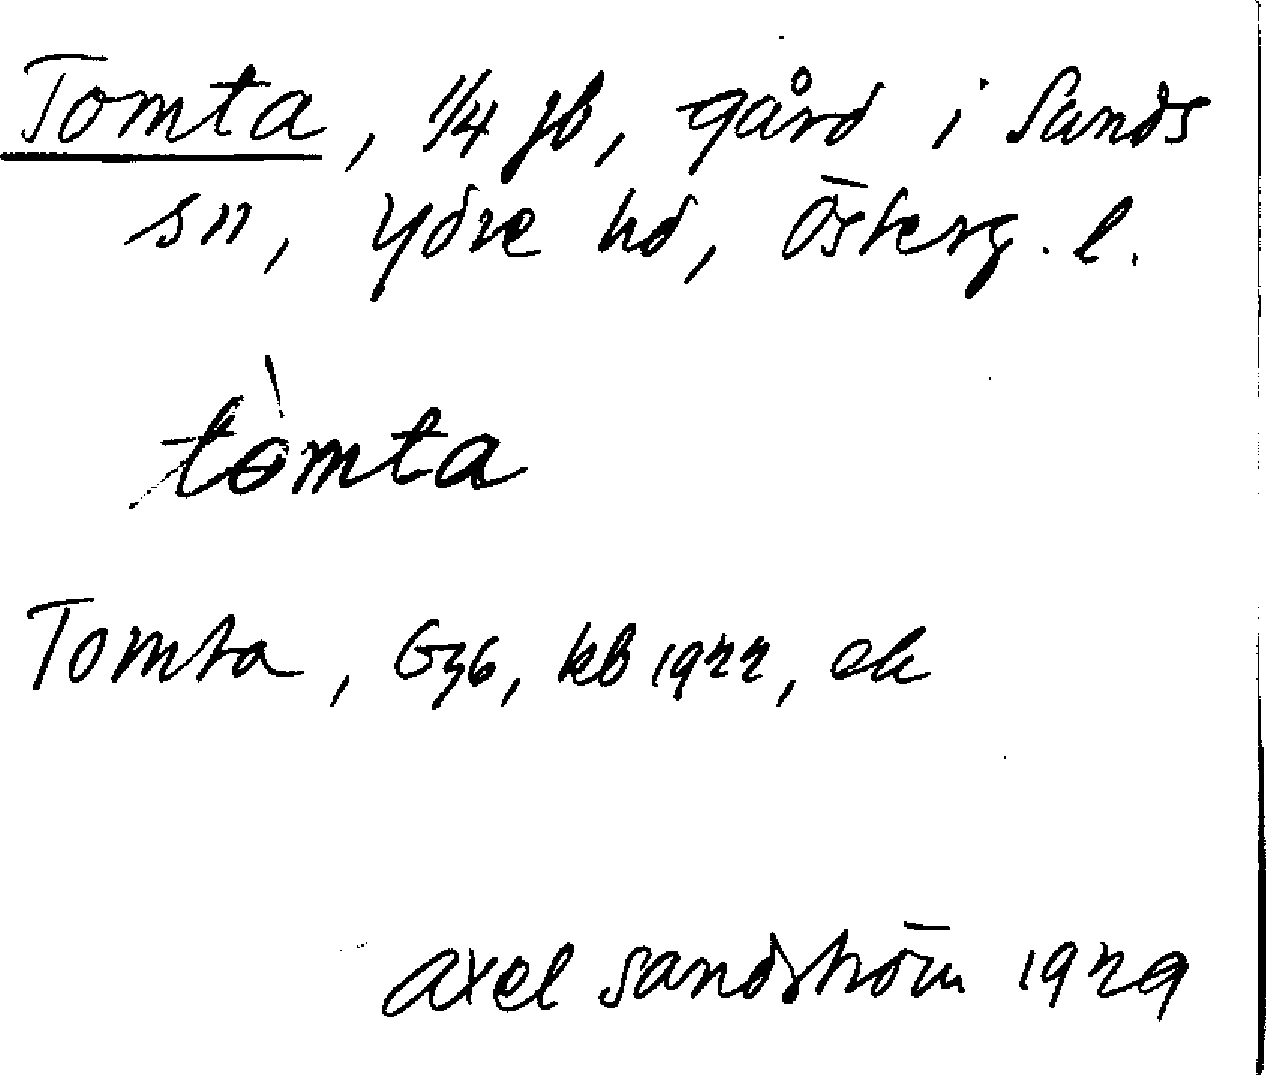 Tomta, 1/4 jb, gård i Sands
sn, Ydre hd, Österg. l.
tòmta
Tomta, G36, kb 1922, ek
Axel Sandström 1929